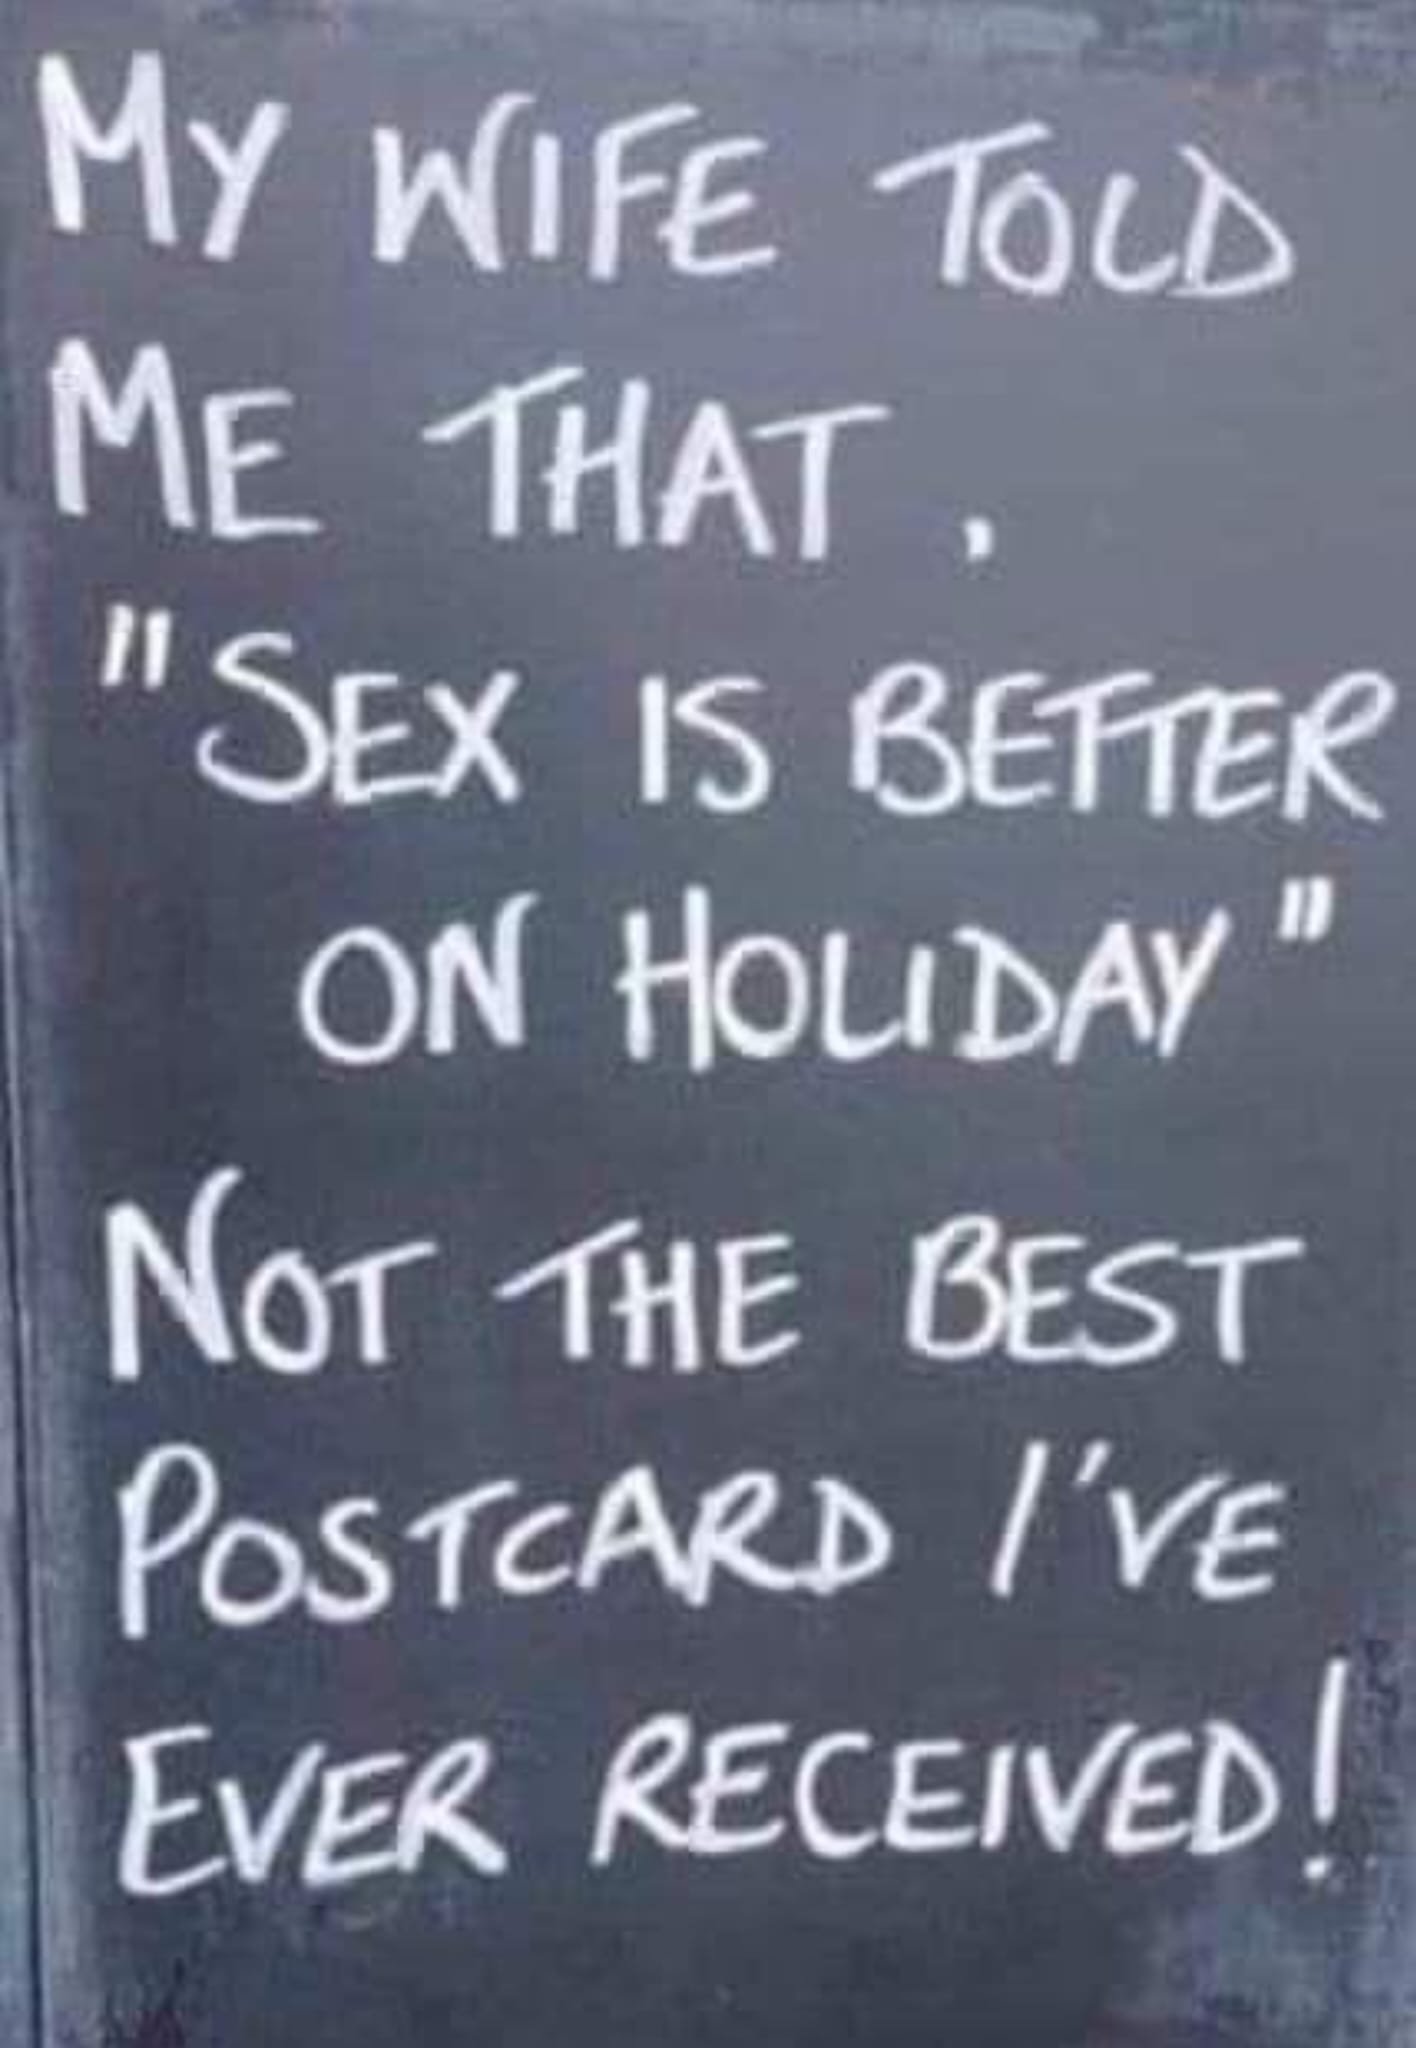 MY WIFE TOLD
ME THAT,
"SEX IS BETTER
ON HOLIDAY"
NOT THE BEST
POSTCARD I'VE
EVER RECEIVED!